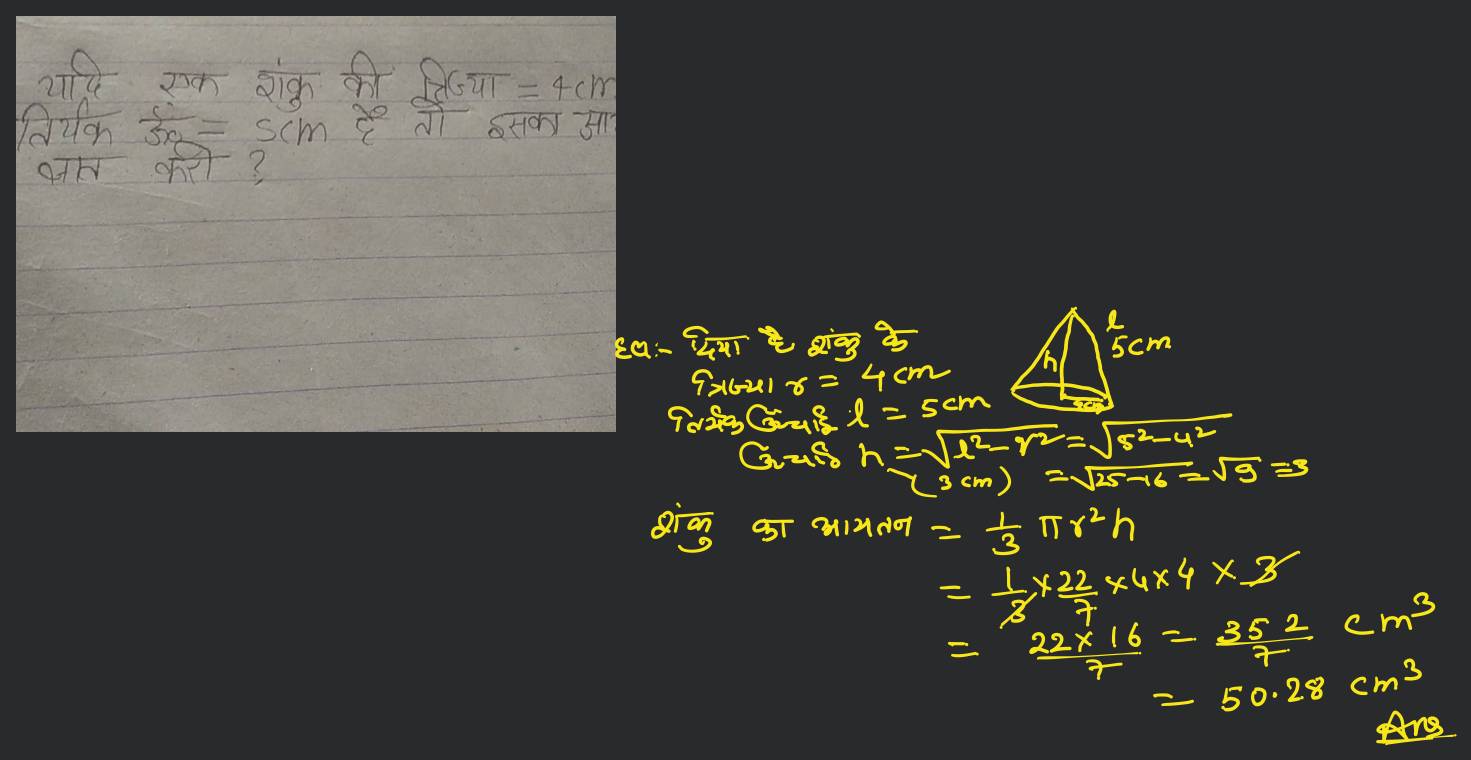 यदि एक शंकु की त्रिज्या = 4cm
तिर्यक ऊँ० = 5cm है तो इसका आ
ज्ञात करो ?
हल:- दिया है शंकु के
त्रिज्या r = 4cm
तिर्यक ऊँचाई l = 5cm
ऊँचाई h = √l²-r² = √5²-4²
(3 cm) = √25-16 = √9 = 3
l
5cm
h
4cm
शंकु का आयतन = 1/3 πr²h
= 1/3 × 22/7 × 4 × 4 × 3
= 22×16/7 = 352/7 cm³
= 50.28 cm³
Ans